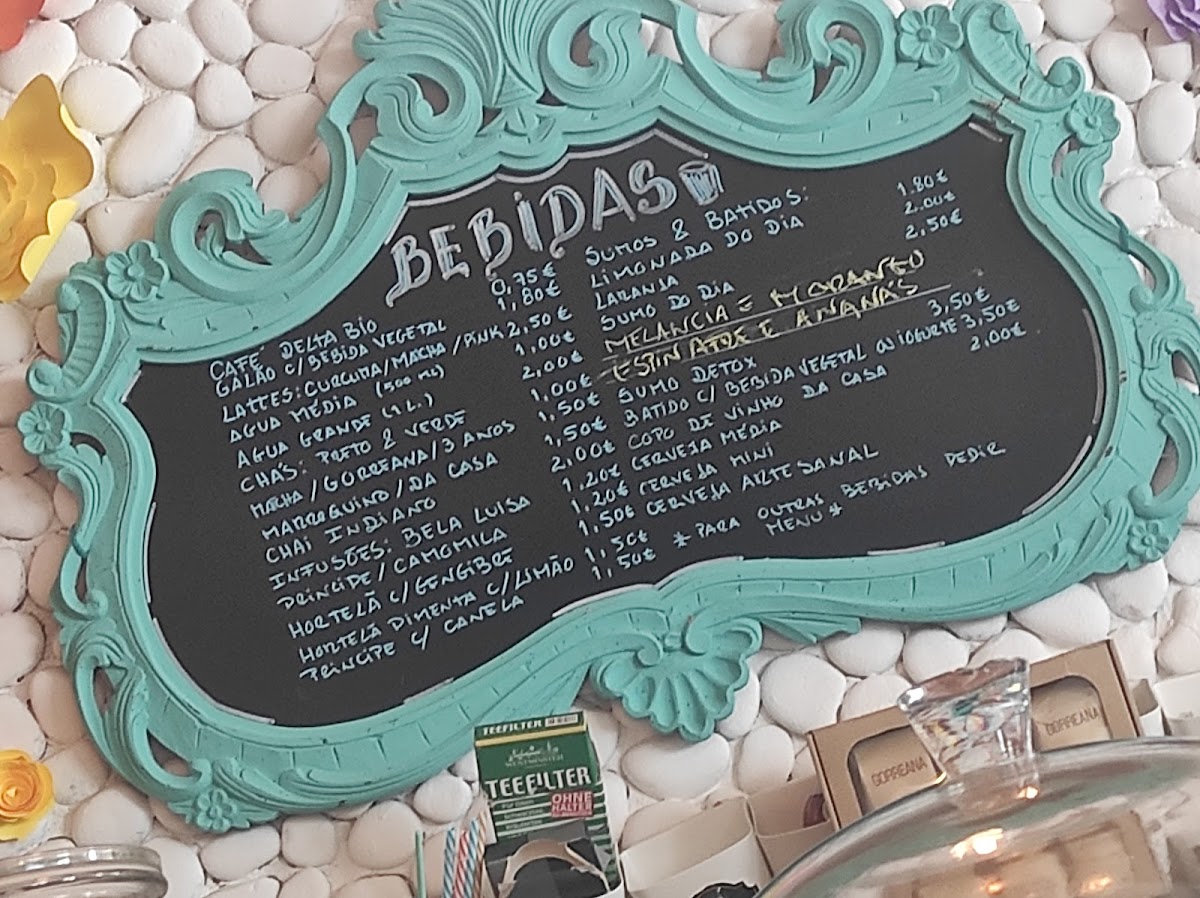 BEBIDAS
CAFÉ DELTA BIO 0,75€
GALÃO C/BEBIDA VEGETAL 1,80€
LATTES: CURCUMA/MACHA/PINK 2,50€
AGUA MÉDIA (500 ML) 1,00€
AGUA GRANDE (1L.) 2,00€
CHÁS: PRETO & VERDE 1,00€
MACHA/GORREANA/3 ANOS 1,50€
MARROQUINO/DA CASA 1,50€
CHAI INDIANO 2,00€
INFUSÕES: BELA LUISA 1,20€
PRINCIPE/CAMOMILA 1,20€
HORTELÃ C/GENGIBRE 1,50€
HORTELÃ PIMENTA C/LIMÃO 1,50€
PRINCIPE C/ CANELA 1,50€
SUMOS & BATIDOS:
LIMONADA DO DIA 1.80€
LARANJA 2.00€
SUMO DO DIA 2,50€
MELANCIA E MORANGO
ESPINAFRE E ANANÁS
SUMO DETOX 3,50€
BATIDO C/BEBIDA VEGETAL OU IOGURTE 3,50€
COPO DE VINHO DA CASA 2,00€
CERVEJA MÉDIA
CERVEJA MINI
CERVEJA ARTESANAL
* PARA OUTRAS BEBIDAS PEDIR
MENU *
TEEFILTER
WESTMINSTER
TEEFILTER
OHNE
HALTER
GORREANA
GORREANA